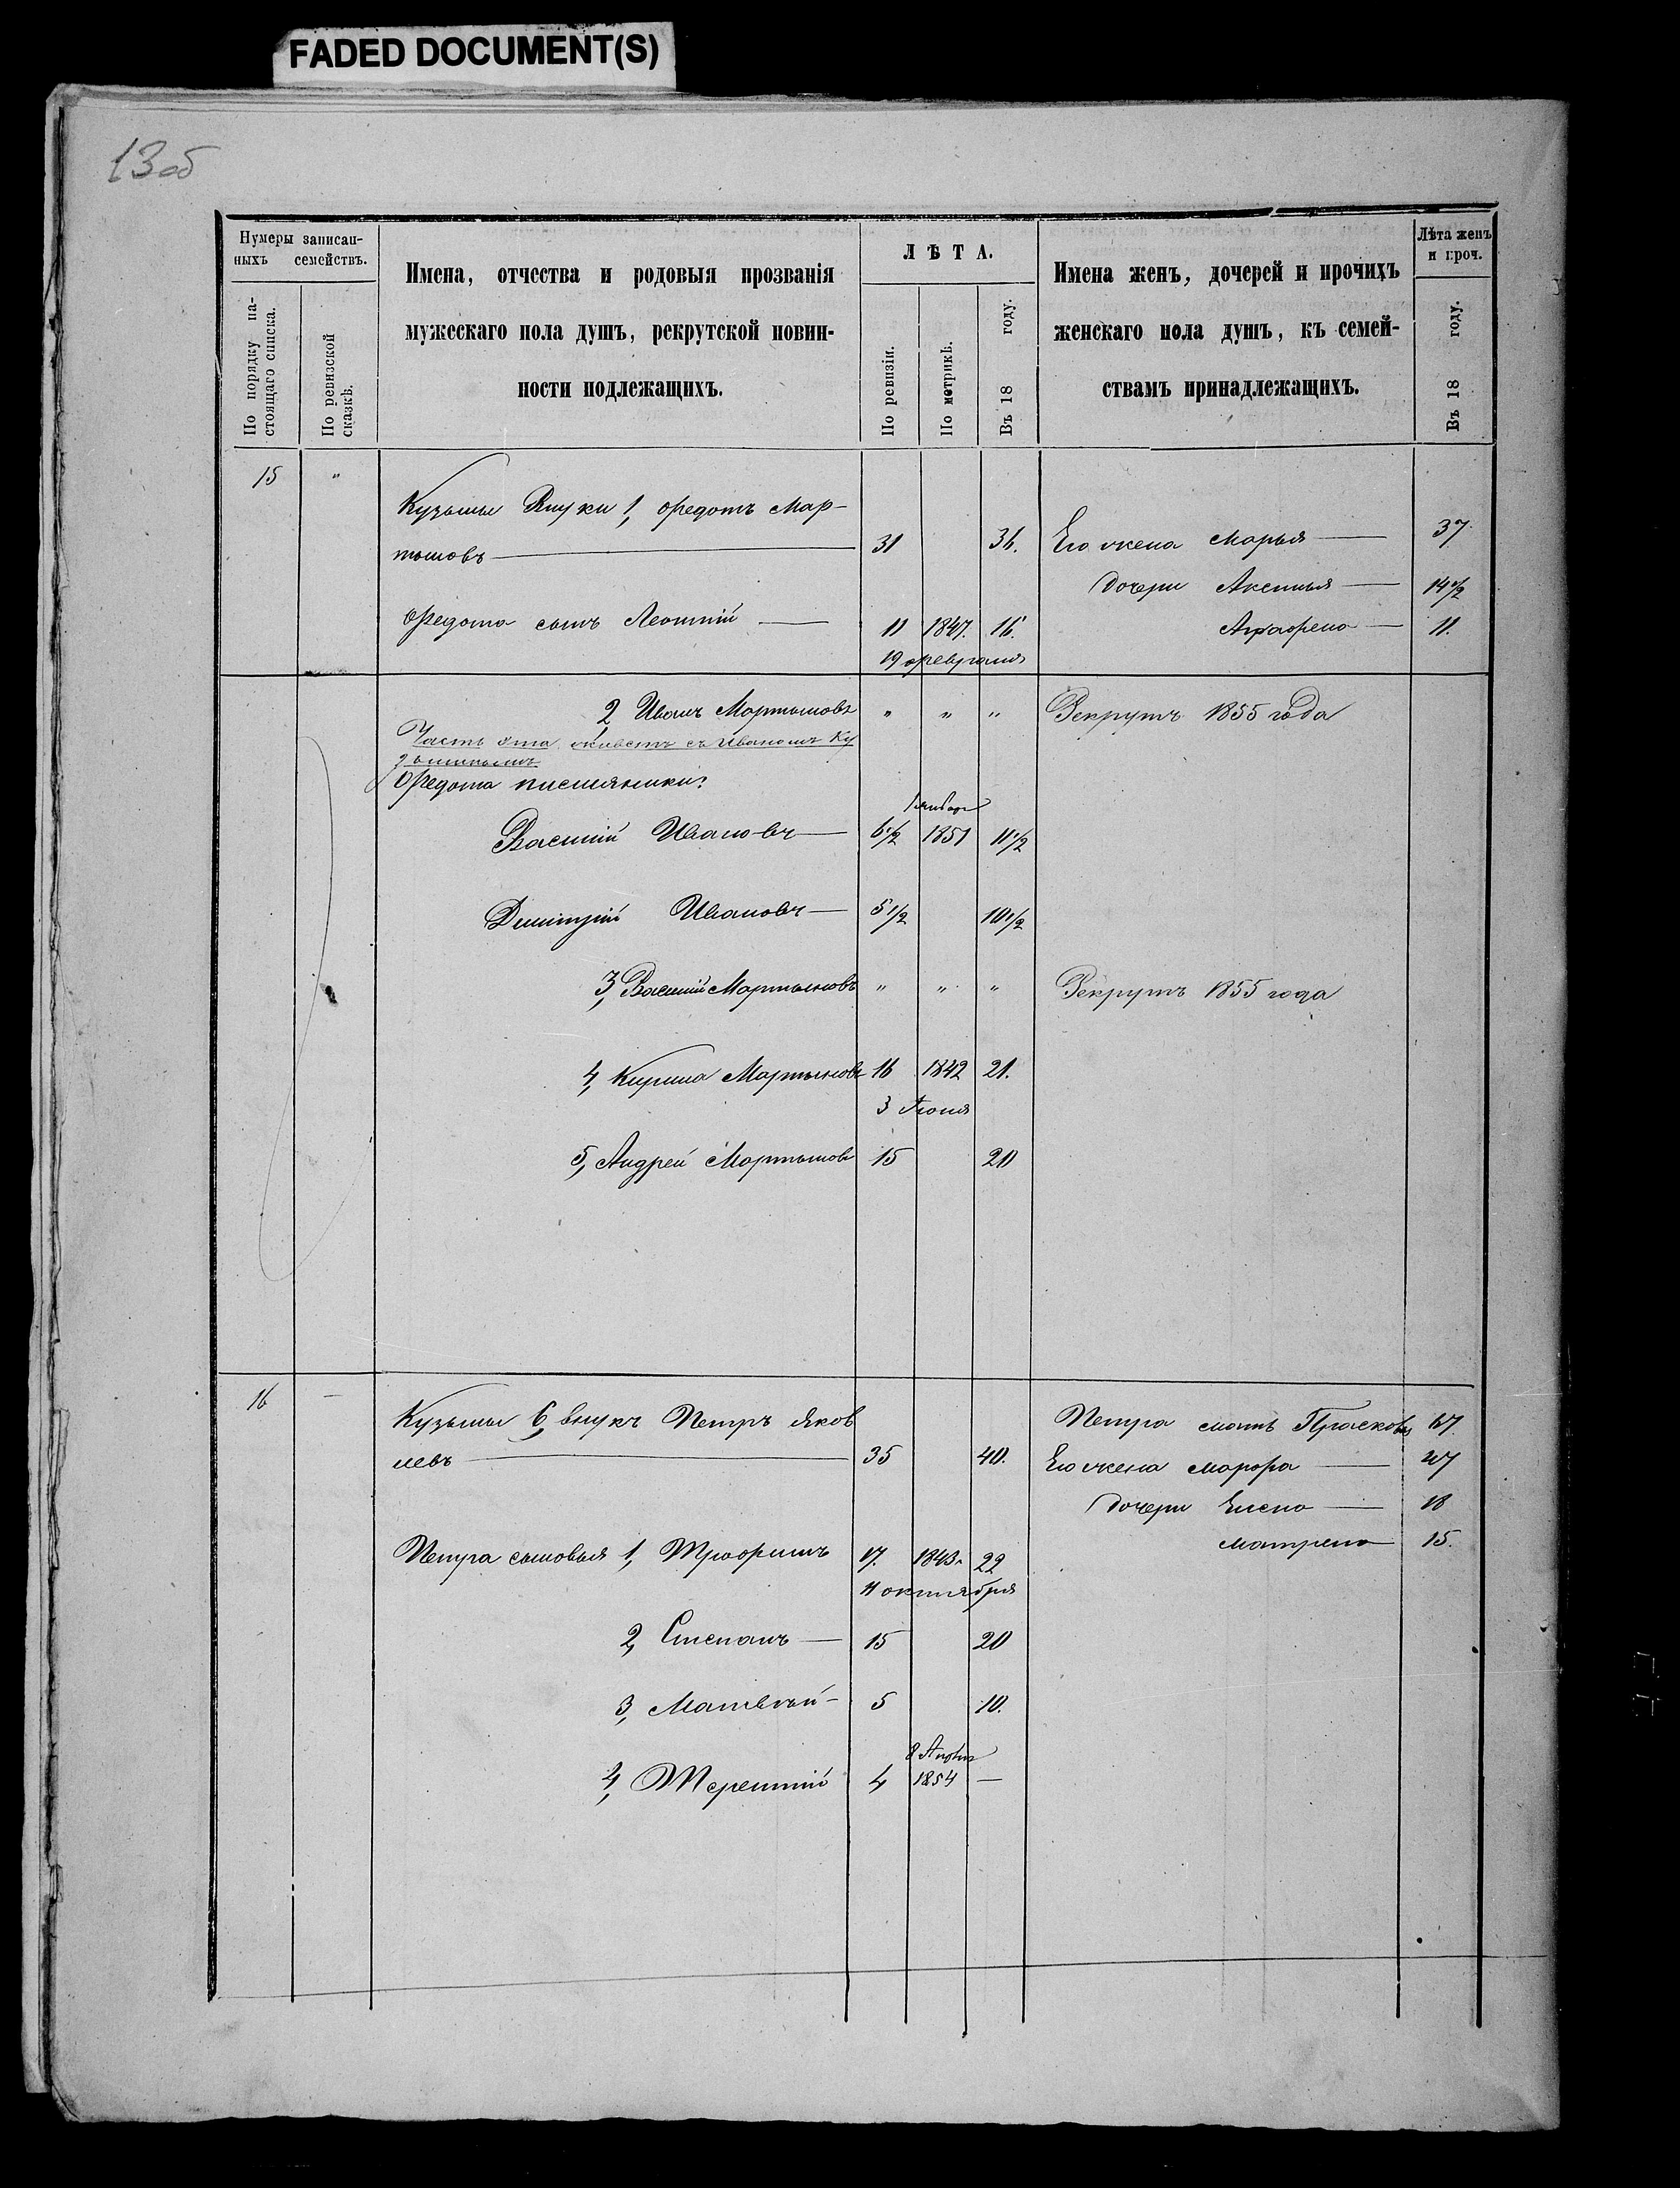 FADED DOCUMENT(S)
13 об
Нумеры записан-
ныхъ семействъ.
По порядку на-
стоящаго списка.
По ревизской
сказкѣ.
Имена, отчества и родовыя прозванія
мужескаго пола душъ, рекрутской повин-
ности подлежащихъ.
ЛѢТА.
По ревизіи.
По метрикѣ.
Въ 18 году.
Имена женъ, дочерей и прочихъ
женскаго пола душъ, къ семей-
ствамъ принадлежащихъ.
Лѣта женъ
и проч.
Въ 18 году.
15 "
Кузьмы Внуки 1, Ѳедотъ Мар-
тыновъ 31 36. Его жена Марья 37
Дочери Аксинья 14 1/2
Ѳедота сынъ Леонтій 11 1847. 16. Аграфена 11.
19 февраля
2 Иванъ Мартыновъ " " " Рекрутъ 1855 года
Часть эта живетъ съ Иваномъ Ку
Ѳедота племяники:
1 января
Василій Ивановъ 6 1/2 1851 11 1/2
Дмитрій Ивановъ 5 1/2 10 1/2
3, Василій Мартыновъ " " " Рекрутъ 1855 года
4, Кирила Мартыновъ 16 1842 21.
3 Июня
5, Андрей Мартыновъ 15 20
16 —
Кузьмы 6, внукъ Петръ Яков Петра мать Прасковья
левъ 35 40. Его жена Марфа
Дочери Елена 18
Матрена 15.
Петра сыновья 1, Трофимъ 17. 1843. 22
октября
2, Степанъ 15 20
3, Матвѣй 5 10.
4, Терентій 4 1854 —